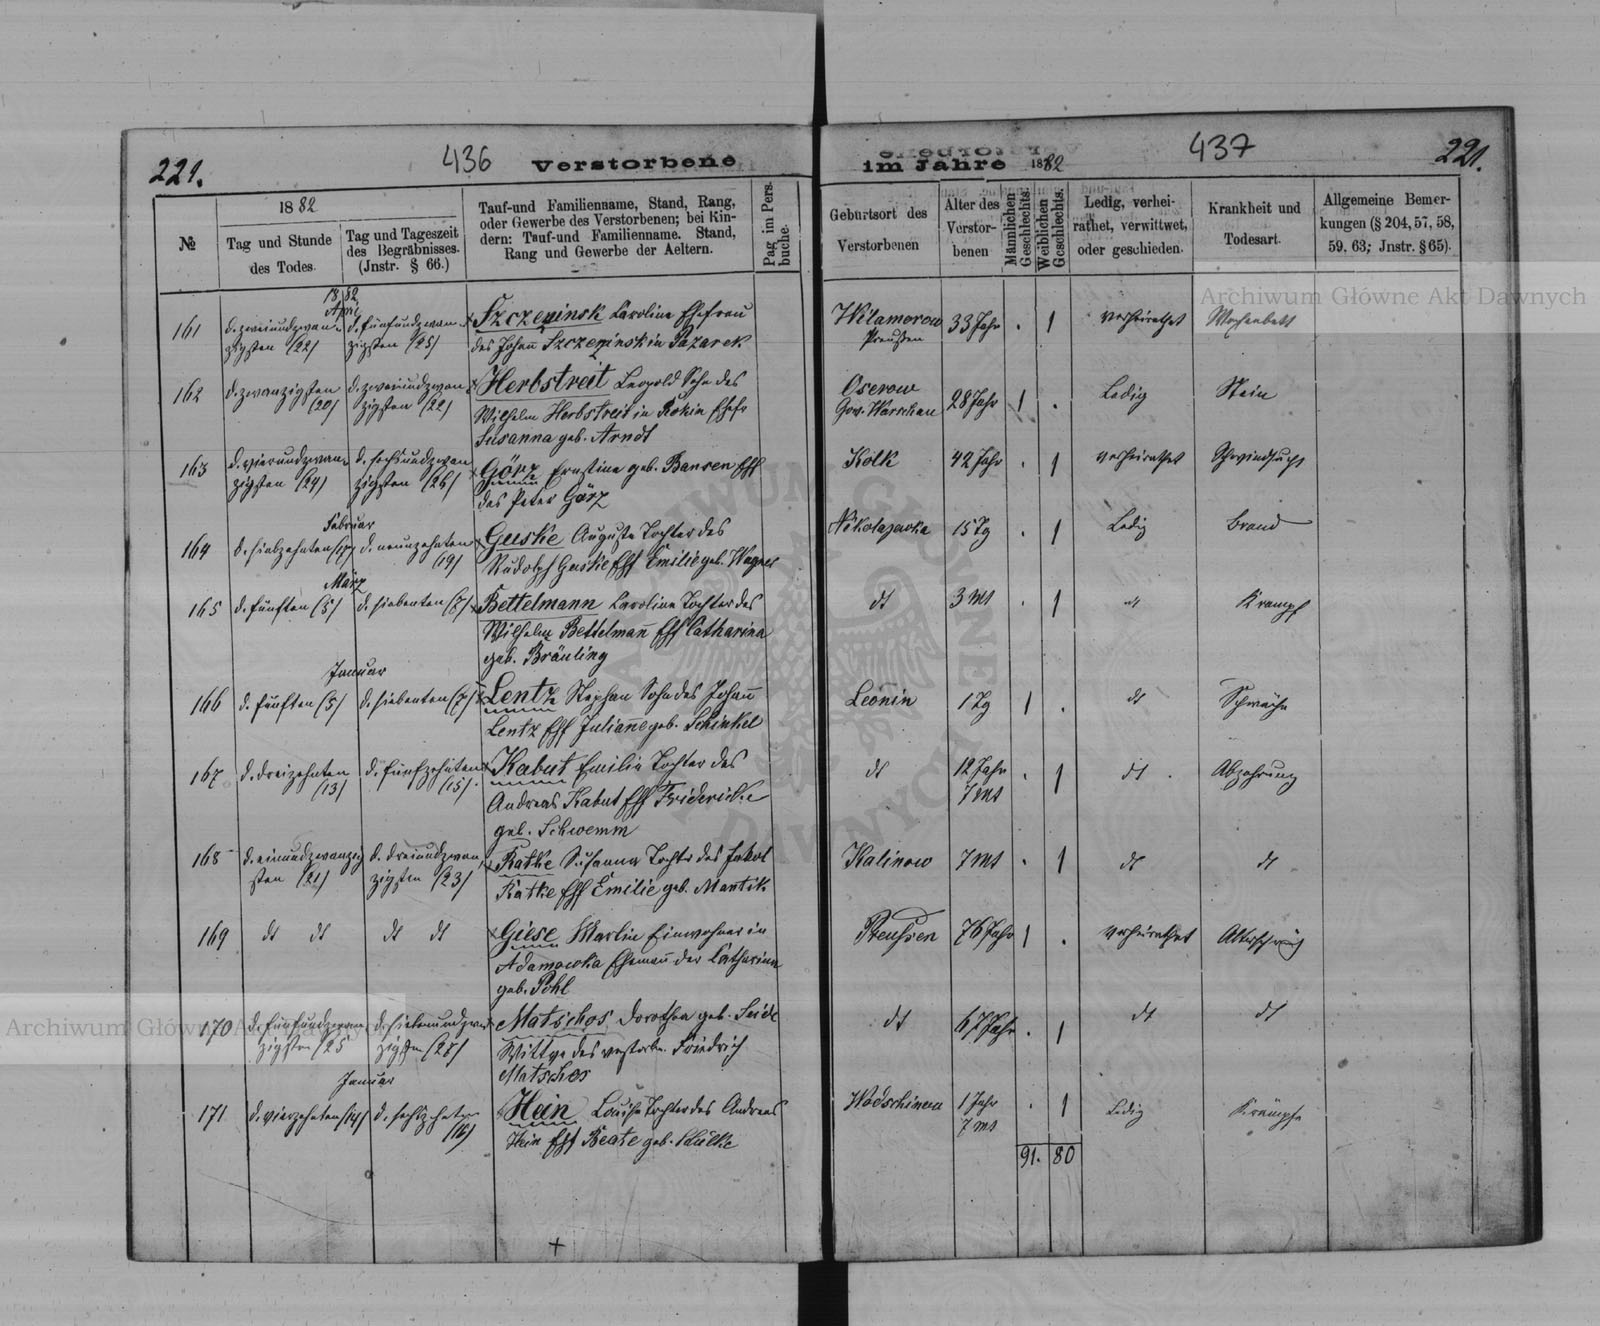 221.
436
Verstorbene
im Jahre 1882
437
221.
№
1882
Tag und Stunde
des Todes.
Tag und Tageszeit
des Begräbnisses.
(Jnstr. § 66.)
Tauf-und Familienname, Stand, Rang,
oder Gewerbe des Verstorbenen; bei Kin-
dern: Tauf-und Familienname. Stand,
Rang und Gewerbe der Aeltern.
Pag im Pers.
buche.
Geburtsort des
Verstorbenen
Alter des
Verstor-
benen
Männlichen
Geschlechts.
Weiblichen
Geschlechts.
Ledig, verhei-
rathet, verwittwet,
oder geschieden.
Krankheit und
Todesart.
Allgemeine Bemer-
kungen (§ 204, 57, 58,
59, 63; Jnstr. § 65).
1882
April
161
d. zweiundzwan-
zigsten (22)
d. fünfundzwan-
zigsten (25)
Szczepinsk Caroline Ehefrau
des Johañ Szczepinsk in Pazarek
Preußen
33 Jahr
1
verheirathet
Wochenbett
162
d. zwanzigsten
(20)
d. zweiundzwan-
zigsten (22)
Herbstreit Leopold Sohn des
Wilhelm Herbstreit in Ehefr
Susanna geb. Arndt
Oserow
Gow. Warschau
28 Jahr
1
Ledig
Stein
163
d. vierundzwan-
zigsten (24)
d. sechsundzwan
zigsten (26)
Görz Ernstine geb. Bansen Eff
des Peter Görz
Kolk
42 Jahr
1
verheirathet
Schwindsucht
Februar
164
d. siebzehnten (17)
d. neunzehnten
(19)
Guske Auguste Tochter des
Rudolph Guske Eff Emilie geb. Wagner
Nikolajewka
15 Tg
1
Ledig
Brand
März
165
d. fünften (5)
d. siebenten (7)
Bettelmann Caroline Tochter des
Wilhelm Bettelmañ Eff Catharina
geb. Bräuling
dt
3 mt
1
dt
Krampf
Januar
166
d. fünften (5)
d. siebenten (7)
Lentz Stephan Sohn des Johañ
Lentz Eff Juliañe geb. Schinkel
Leonin
1 Tg
1
dt
Schwäche
167
d. dreizehnten
(13)
d. fünfzehnten
(15)
Kabut Emilie Tochter des
Andreas Kabut Eff Friedericke
geb. Schwemm
dt
12 Jahr
7 mt
1
dt
Abzehrung
168
d. einundzwanzig
sten (21)
d. dreiundzwan
zigsten (23)
Ratke Susanna Tochter des Jakob
Ratke Eff Emilie geb. Mantik
Kalinow
7 mt
1
dt
dt
169
dt dt
dt dt
Giese Martin Einwohner in
Adamowka Ehemañ der Catharina
geb. Pohl
Preußen
76 Jahr
1
verheirathet
170
d. fünfundzwan
zigsten (25
d. siebenundzwan
zigsten (27)
Matschos Dorothea geb. Seide
Wittwe des verstorbn. Friedrich
Matschos
dt
67 Jahr
1
dt
dt
Januar
171
d. vierzehnten (14)
d. sechszehnten
(16)
Hein Louise Tochter des Andreas
Hein Eff Beate geb. Schülke
1 Jahr
7 mt
1
Ledig
Krämpfe
91. 80
Archiwum Główne Akt Dawnych
Archiwum Główne Akt Dawnych